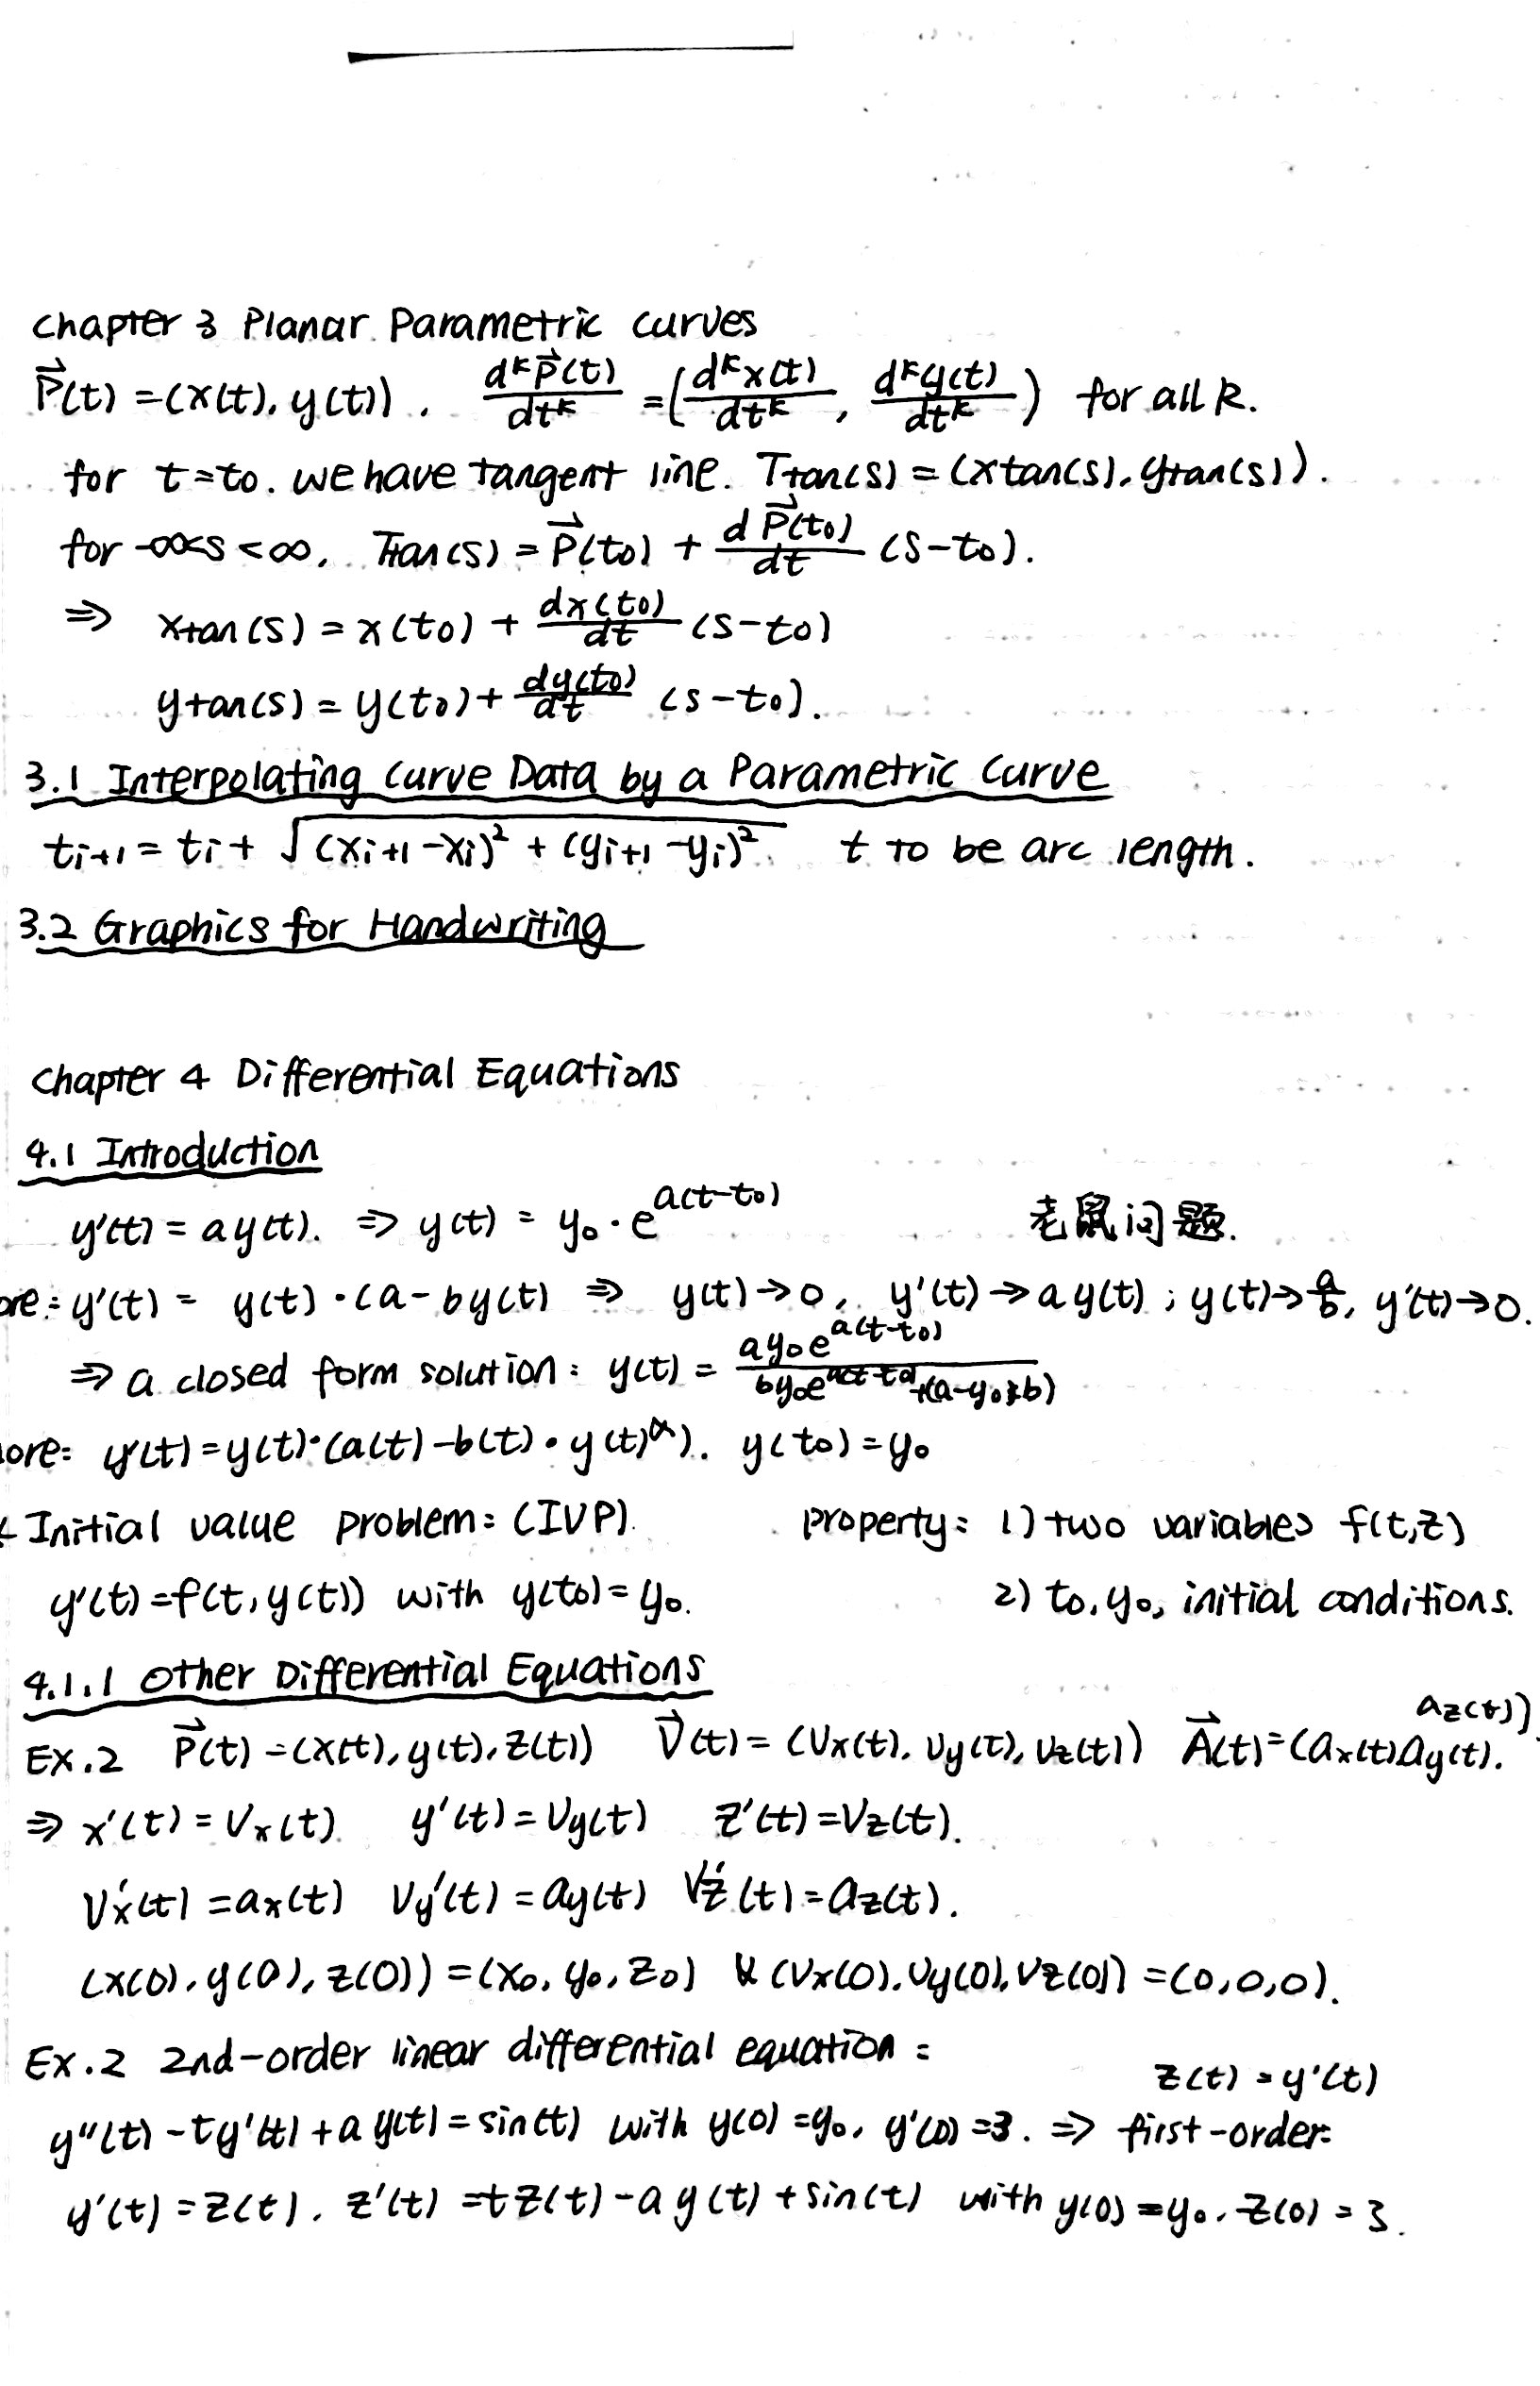 Chapter 3 Planar Parametric curves
P⃗(t) = (x(t), y(t)). d^k P⃗(t)/dt^k = (d^k x(t)/dt^k, d^k y(t)/dt^k) for all k.
for t=t₀. we have tangent line. Ttan(s) = (xtan(s), ytan(s)).
for -∞<s<∞, Ttan(s) = P⃗(t₀) + dP⃗(t₀)/dt (s-t₀).
⇒ xtan(s) = x(t₀) + dx(t₀)/dt (s-t₀)
ytan(s) = y(t₀) + dy(t₀)/dt (s-t₀).
3.1 Interpolating Curve Data by a Parametric Curve
tᵢ₊₁ = tᵢ + √((xᵢ₊₁-xᵢ)² + (yᵢ₊₁-yᵢ)²) t to be arc length.
3.2 Graphics for Handwriting
Chapter 4 Differential Equations
4.1 Introduction
y'(t) = ay(t). ⇒ y(t) = y₀·e^a(t-t₀) 老鼠问题.
ore: y'(t) = y(t)·(a-by(t) ⇒ y(t)→0, y'(t)→ay(t); y(t)→a/b, y'(t)→0.
⇒ a closed form solution: y(t) = ay₀e^a(t-t₀) / by₀e^a(t-t₀)+(a-y₀*b)
ore: y'(t) = y(t)·(a(t)-b(t)·y(t)^α). y(t₀)=y₀
Initial value problem: (IVP). property: 1) two variables f(t,z)
y'(t)=f(t,y(t)) with y(t₀)=y₀. 2) t₀,y₀, initial conditions.
4.1.1 Other Differential Equations
Ex.2 P⃗(t) = (x(t), y(t), z(t)) V⃗(t) = (Vx(t), Vy(t), Vz(t)) A⃗(t) = (ax(t) ay(t). az(t))
⇒ x'(t) = Vx(t) y'(t) = Vy(t) z'(t) = Vz(t).
Vx'(t) = ax(t) Vy'(t) = ay(t) Vz'(t) = az(t).
(x(0), y(0), z(0)) = (x₀, y₀, z₀) & (Vx(0), Vy(0), Vz(0)) = (0,0,0).
Ex.2 2nd-order linear differential equation:
z(t) = y'(t)
y''(t) - ty'(t) + ay(t) = sin(t) with y(0)=y₀, y'(0)=3. ⇒ first-order:
y'(t) = z(t). z'(t) = tz(t) - ay(t) + sin(t) with y(0)=y₀, z(0)=3.